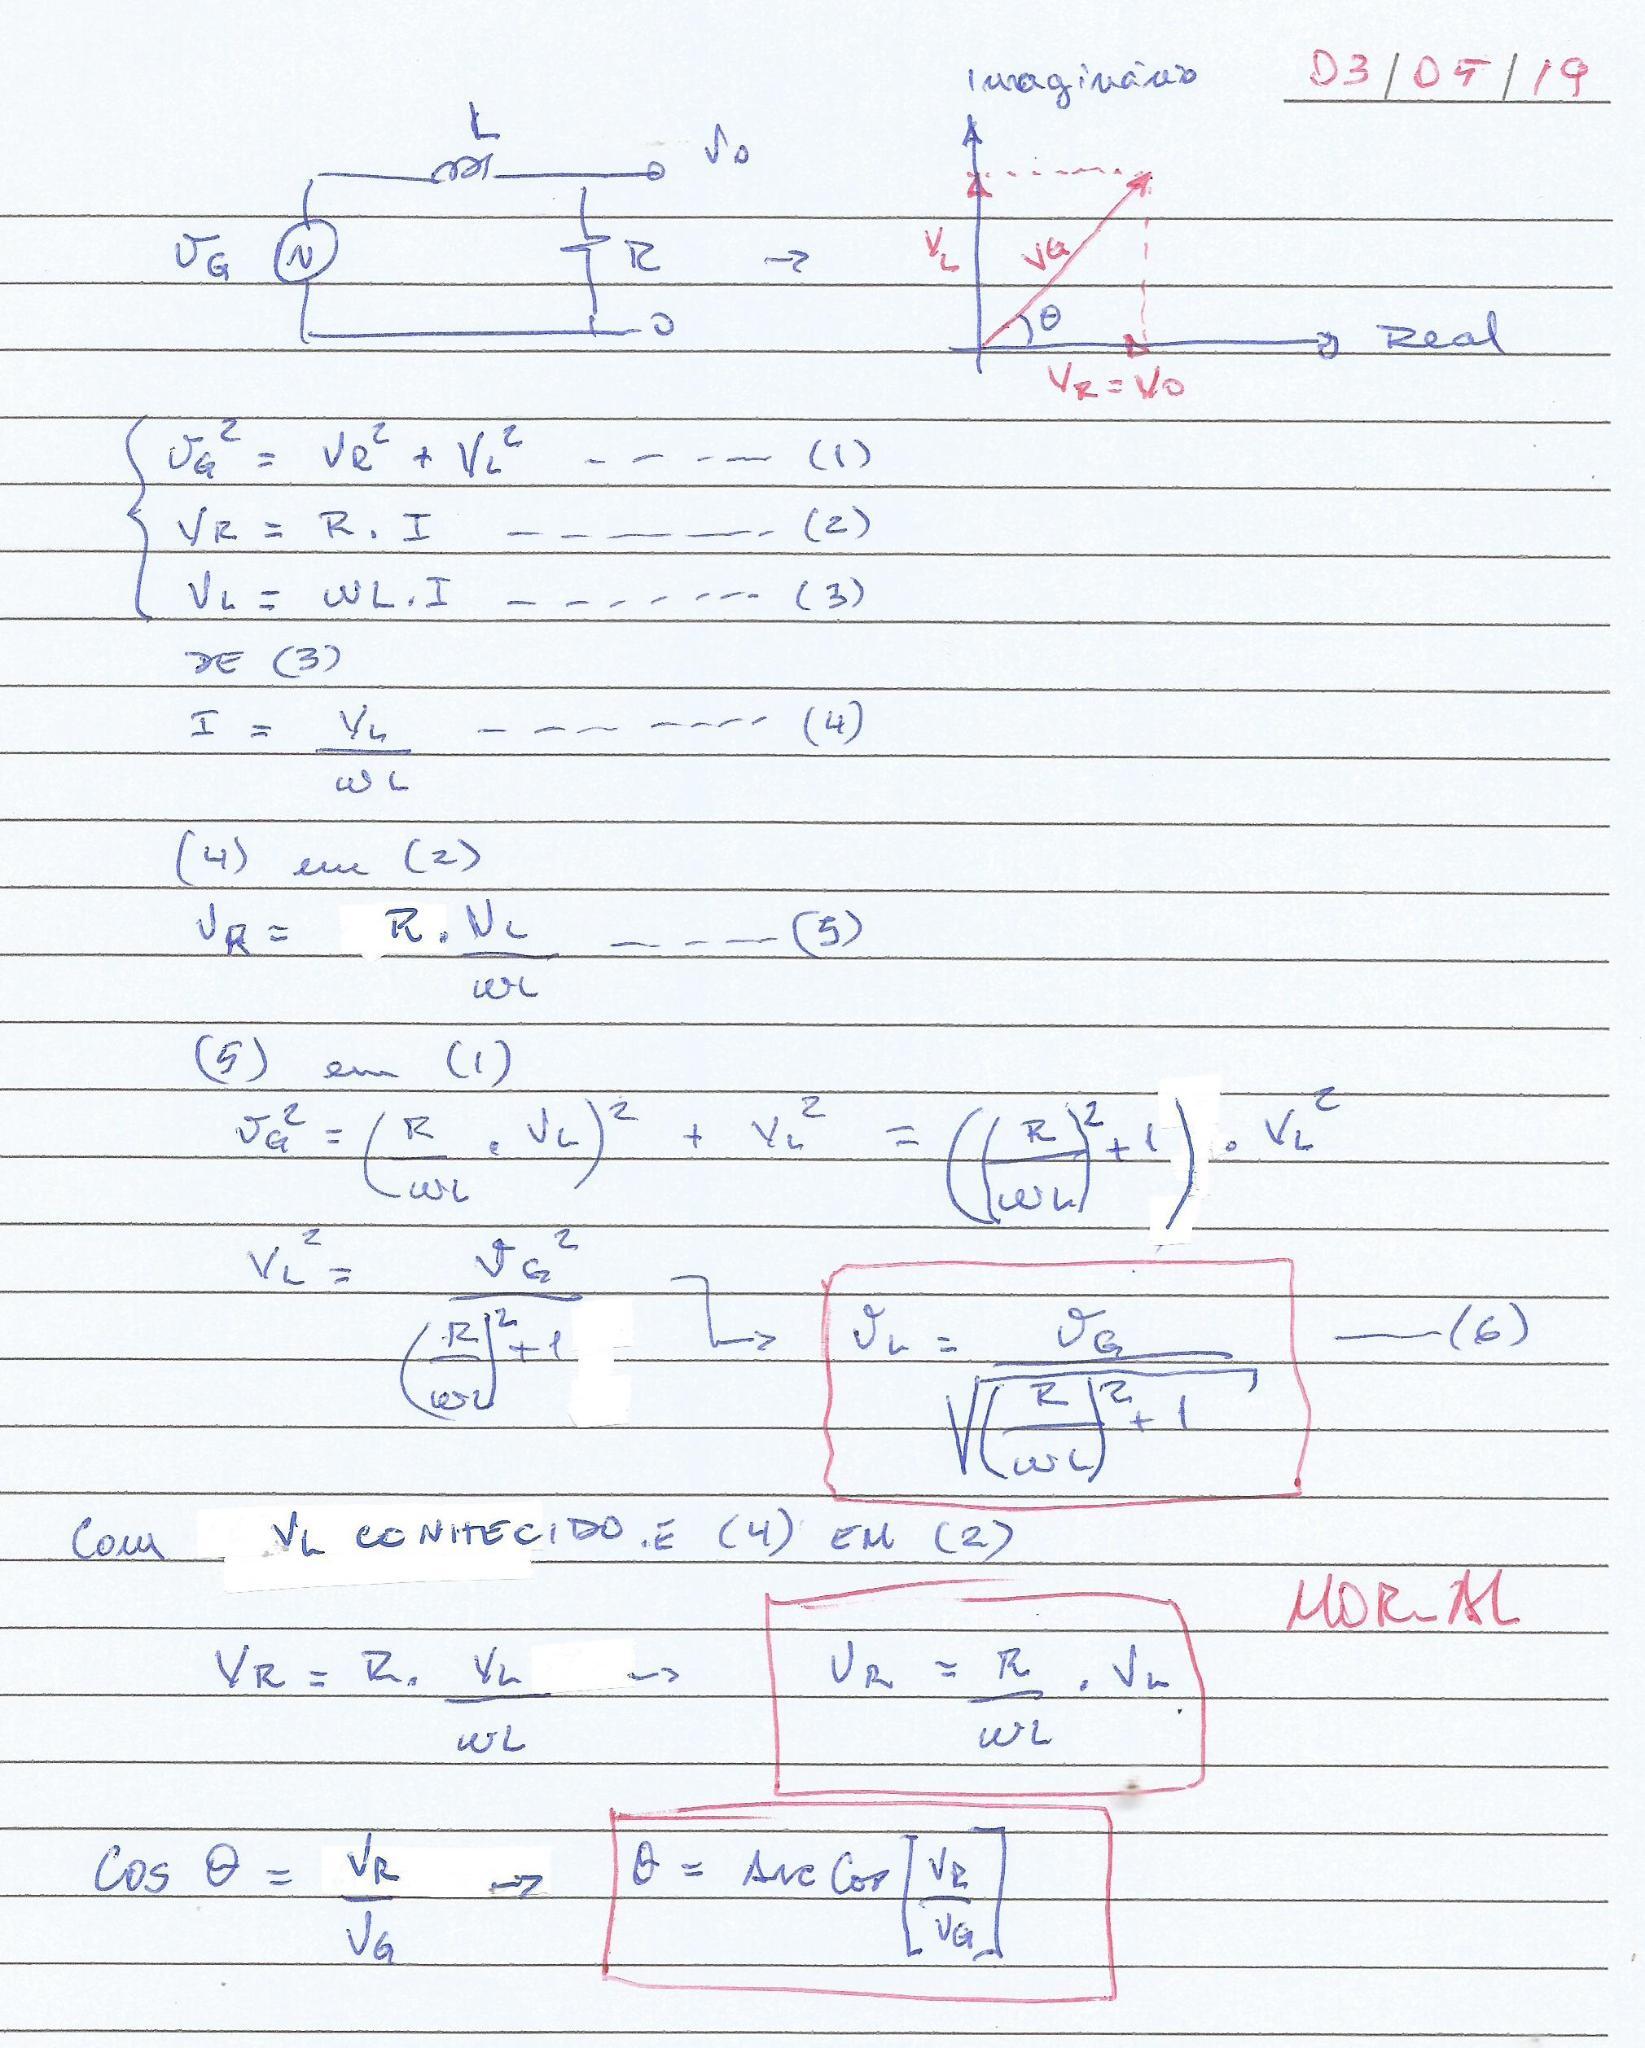 Imaginário
03/07/19
L
Vo
VG
R
→
VL
VG
θ
Real
VR = Vo
VG² = VR² + VL² ----- (1)
VR = R. I ------- (2)
VL = WL.I ------- (3)
DE (3)
I = VL/WL -------- (4)
(4) em (2)
VR = R. VL/WL ----- (5)
(5) em (1)
VG² = (R/WL . VL)² + VL² = ((R/WL)² + 1) . VL²
VL² = VG²/((R/WL)² + 1) → VL = VG/√((R/WL)² + 1) —— (6)
Com VL CONHECIDO.E (4) EM (2)
VR = R. VL/WL → VR = R/WL . VL
Cos θ = VR/VG → θ = Arc Cos [VR/VG]